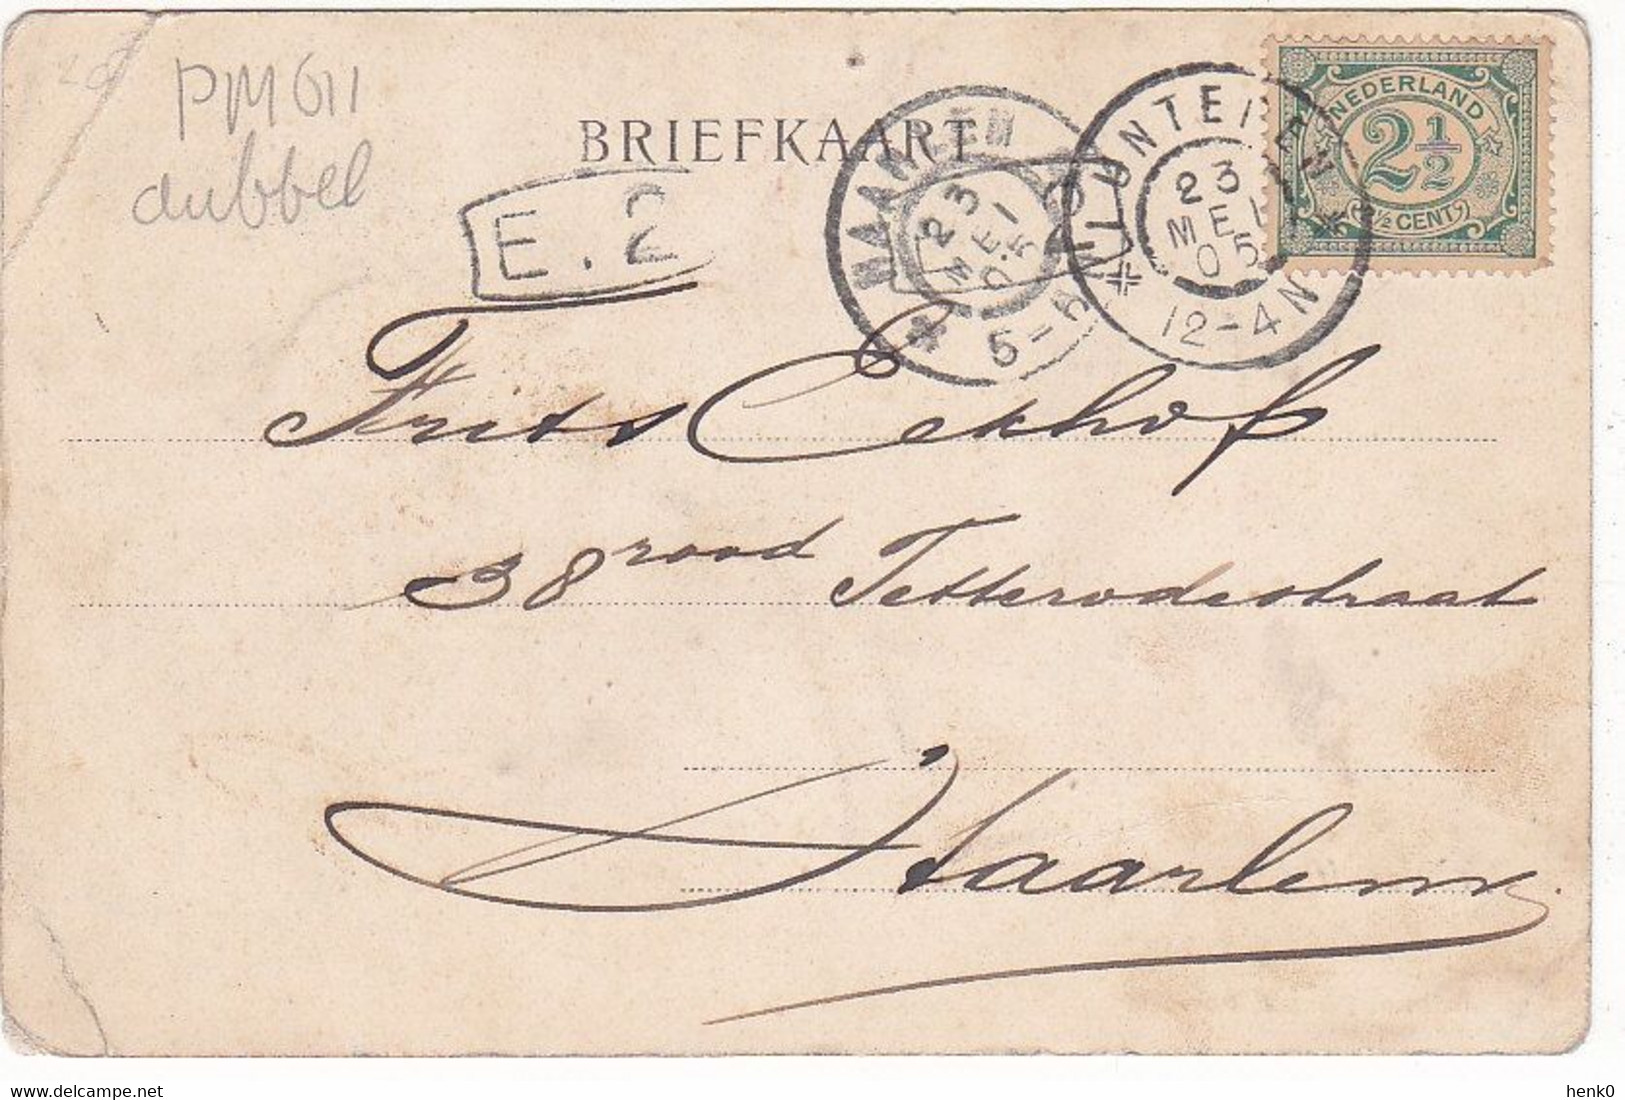 PM 611
dubbel
BRIEFKAART
E. 2
HAARLEM
23
MEI
05
5-6 N
LUNTEREN
23
MEI
05
12-4N
NEDERLAND
2 1/2
2 1/2 CENT
Frits Eekhof
38 rood Tetterodestraat
Haarlem.
henk0